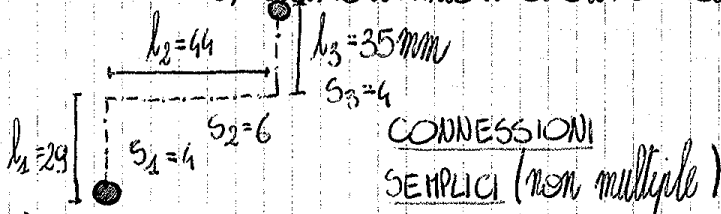 l₂=44
l₃=35mm
S₃=4
l₁=29
S₁=4
S₂=6
CONNESSIONI
SEMPLICI (non multiple)